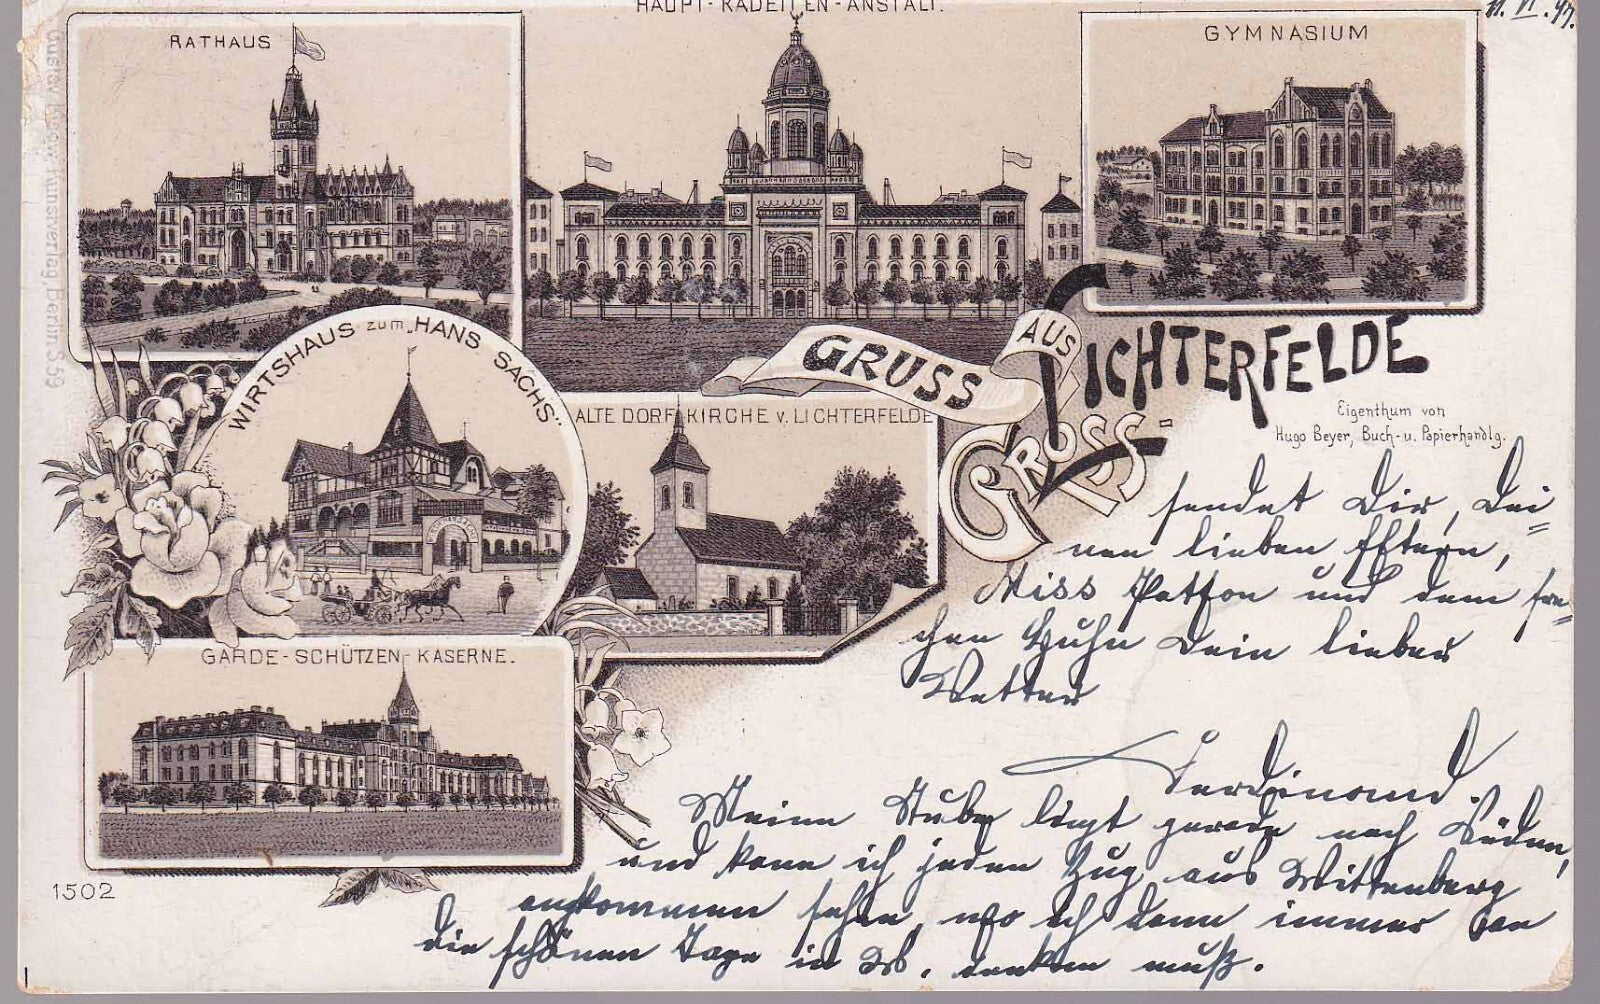 HAUPT-KADETTEN-ANSTALT.
11. VI. 97.
RATHAUS
GYMNASIUM
Gustav Kunstverlag, Berlin S.59
WIRTSHAUS zum „HANS SACHS“.
GRUSS AUS LICHTERFELDE
GROSS
Eigenthum von
Hugo Beyer, Buch- u. Papierhandlg.
ALTE DORFKIRCHE v. LICHTERFELDE
GARDE-SCHÜTZEN-KASERNE.
1502
sendet Dir, Dei=
nen lieben Eltern,
Miss und dem fre=
chen Huhn Dein lieber
Vetter
Ferdinand.
Meine Stube liegt gerade nach Süden,
und kann ich jeden Zug aus Wittenberg
ankommen sehen, wo ich dann immer an
die schönen Tage in W. denken muß.